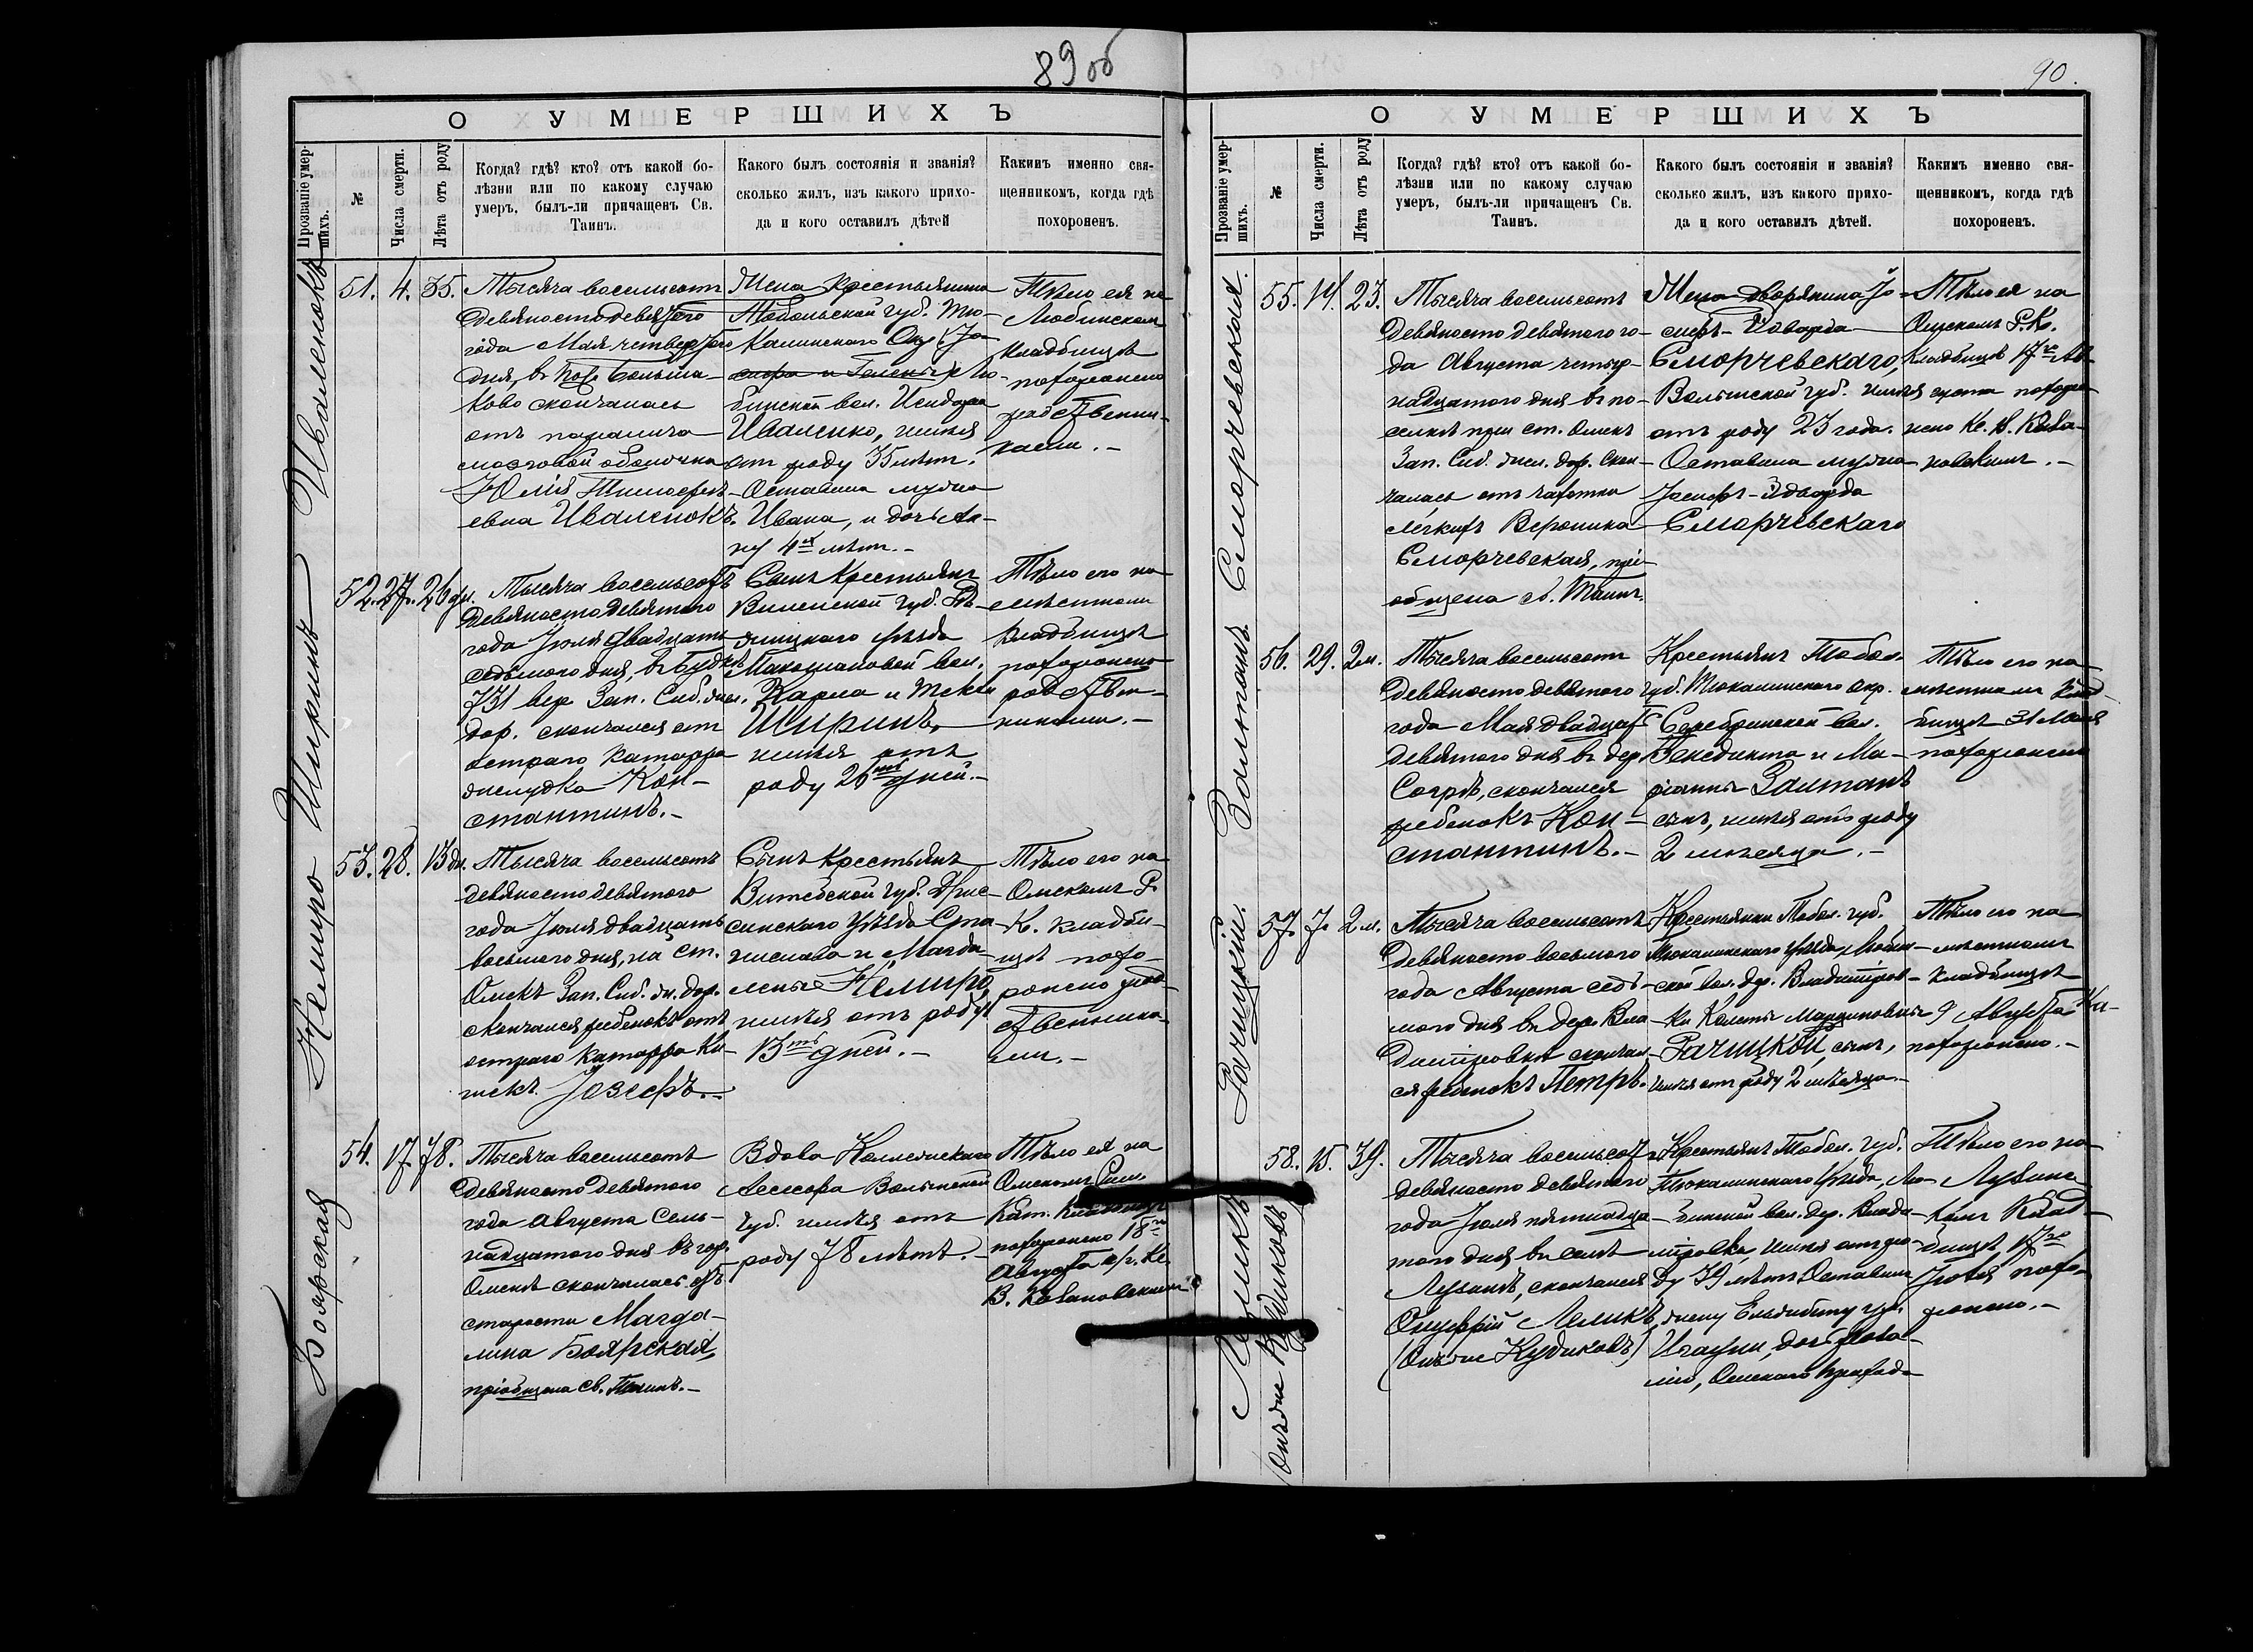 89 об
О УМЕРШИХЪ
Прозваніе умер-
шихъ.
№
Числа смерти.
Лѣта отъ роду
Когда? гдѣ? кто? отъ какой бо-
лѣзни или по какому случаю
умеръ, былъ-ли причащенъ Св.
Таинъ.
Какого былъ состоянія и званія?
сколько жилъ, изъ какого прихо-
да и кого оставилъ дѣтей
Какимъ именно свя-
щенникомъ, когда гдѣ
похороненъ.
Иваленокъ
51. 4. 35.
Тысяча восемьсотъ
девяностодевятого
года Мая четвертого
дня, въ
скончалась
отъ паралича
мозговой оболочки
Юлія Тимофе-
евна Иваленокъ.
Жена крестьянина
Тобольской губ. Тю-
калинскаго Окр. Іо-
сифа и Гелены Лю-
бинской вол. Исидора
Иваленко, имѣя
отъ роду 35 лѣтъ.
Оставила мужа
Ивана, и дочь Ан-
ну 4хъ лѣтъ.-
Тѣло ея на
Любинскомъ
кладбищѣ
похоронено
родственни-
ками.-
Ширинъ
52. 27. 26 дн.
Тысяча восемьсотъ
девяностодевятого
года Іюля двадцать
седьмого дня, въ Будкѣ
731 вер. Зап. Сиб. жел.
дор. скончался отъ
остраго катарра
желудка Кон-
стантинъ.-
Сынъ крестьянъ
Виленской губ. Рѣ-
жицкаго уѣзда
Макашановой вол.
Карла и Теклы
Ширинъ,
имѣя отъ
роду 26ть дней.-
Тѣло его на
мѣстномъ
кладбищѣ
похоронено
родствен-
никами.-
Немиро
53. 28. 13 дн.
Тысяча восемьсотъ
девяностодевятого
года Іюля двадцать
восьмого дня, на ст.
Омскъ Зап. Сиб. ж. дор.
скончался ребенокъ отъ
остраго катарра ки-
шекъ Іозефъ.-
Сынъ крестьянъ
Витебской губ. Дрис-
синскаго уѣзда Ста-
нислава и Магда-
лены Немиро,
имѣя отъ роду
13ть дней.-
Тѣло его на
Омскомъ Р.
К. кладби-
щѣ похо-
ронено род-
ственника-
ми.-
Боярская
54. 17. 78.
Тысяча восемьсотъ
девяностодевятого
года Августа семь-
надцатого дня въ гор.
Омскѣ скончалась отъ
старости Магда-
лина Боярская,
пріобщена св. Таинъ.-
Вдова Коллежскаго
Ассесора Волынской
губ. имѣя отъ
роду 78 лѣтъ.-
Тѣло ея на
Омскомъ Рим.
Кат. кладбищѣ
похоронено 18го
Августа кр. Кс.
В. Казановскимъ
90.
О УМЕРШИХЪ
Прозваніе умер-
шихъ.
№
Числа смерти.
Лѣта отъ роду
Когда? гдѣ? кто? отъ какой бо-
лѣзни или по какому случаю
умеръ, былъ-ли причащенъ Св.
Таинъ.
Какого былъ состоянія и званія?
сколько жилъ, изъ какого прихо-
да и кого оставилъ дѣтей.
Какимъ именно свя-
щенникомъ, когда гдѣ
похороненъ.
Сморчевская.
55. 14. 23.
Тысяча восемьсотъ
девяносто девятого го-
да Августа четыр-
надцатого дня въ по-
селкѣ при ст. Омскъ
Зап. Сиб. жел. дор. скон-
чалась отъ чахотки
легкихъ Вероника
Сморчевская, прі-
общена св. Таинъ.
Жена дворянина Іо-
сифъ-Эдварда
Сморчевскаго,
Волынской губ. имѣя
отъ роду 23 года.
Оставила мужа
Іосифъ-Эдварда
Сморчевскаго
Тѣло ея на
Омскомъ Р.К.
Кладбищѣ 17го Ав-
густа похоро-
нено Кс. В. Каза-
новскимъ.-
Залтанъ.
56. 29. 2 м.
Тысяча восемьсотъ
девяносто девятого
года Мая двадцать
девятого дня въ дер.
Согрѣ, скончался
ребенокъ Кон-
стантинъ.-
Крестьянъ Тобол.
губ. Тюкалинскаго окр.
Серебринской вол.
Бенедикта и Ма-
ріанны Залтанъ
сынъ, имѣя отъ роду
2 мѣсяца.-
Тѣло его на
мѣстномъ клад-
бищѣ 31 Мая
похоронено
Рачицкій.
57. 7. 2 м.
Тысяча восемьсотъ
девяносто восьмого
года Августа седь-
мого дня въ дер. Вла-
диміровкѣ скончал-
ся ребенокъ Петръ.
Крестьянки Тобол. губ.
Тюкалинскаго уѣзда, Любин-
ской вол. дер. Владиміров-
ки
Рачицкой, сынъ,
имѣя отъ роду 2 мѣсяца.-
Тѣло его на
мѣстномъ
кладбищѣ
9 Августа
похоронено.-
Лемикъ
Онъ же Кудиковъ
58. 15. 39.
Тысяча восемьсотъ
девяносто девятого
года Іюля пятнадца-
того дня въ селѣ
Лузинѣ, скончался
Онуфрій Лемикъ,
(Онъ же Кудиковъ)
Крестьянъ Тобол. губ.
Тюкалинскаго Уѣзда, Лю-
бинской вол. дер. Влади-
міровки, имѣя отъ ро-
ду 39 лѣтъ. Оставилъ
жену Елизавету
Омскаго прихода
Тѣло его на
Лузинс-
комъ Клад-
бищѣ 17го
Іюля похо-
ронено.-